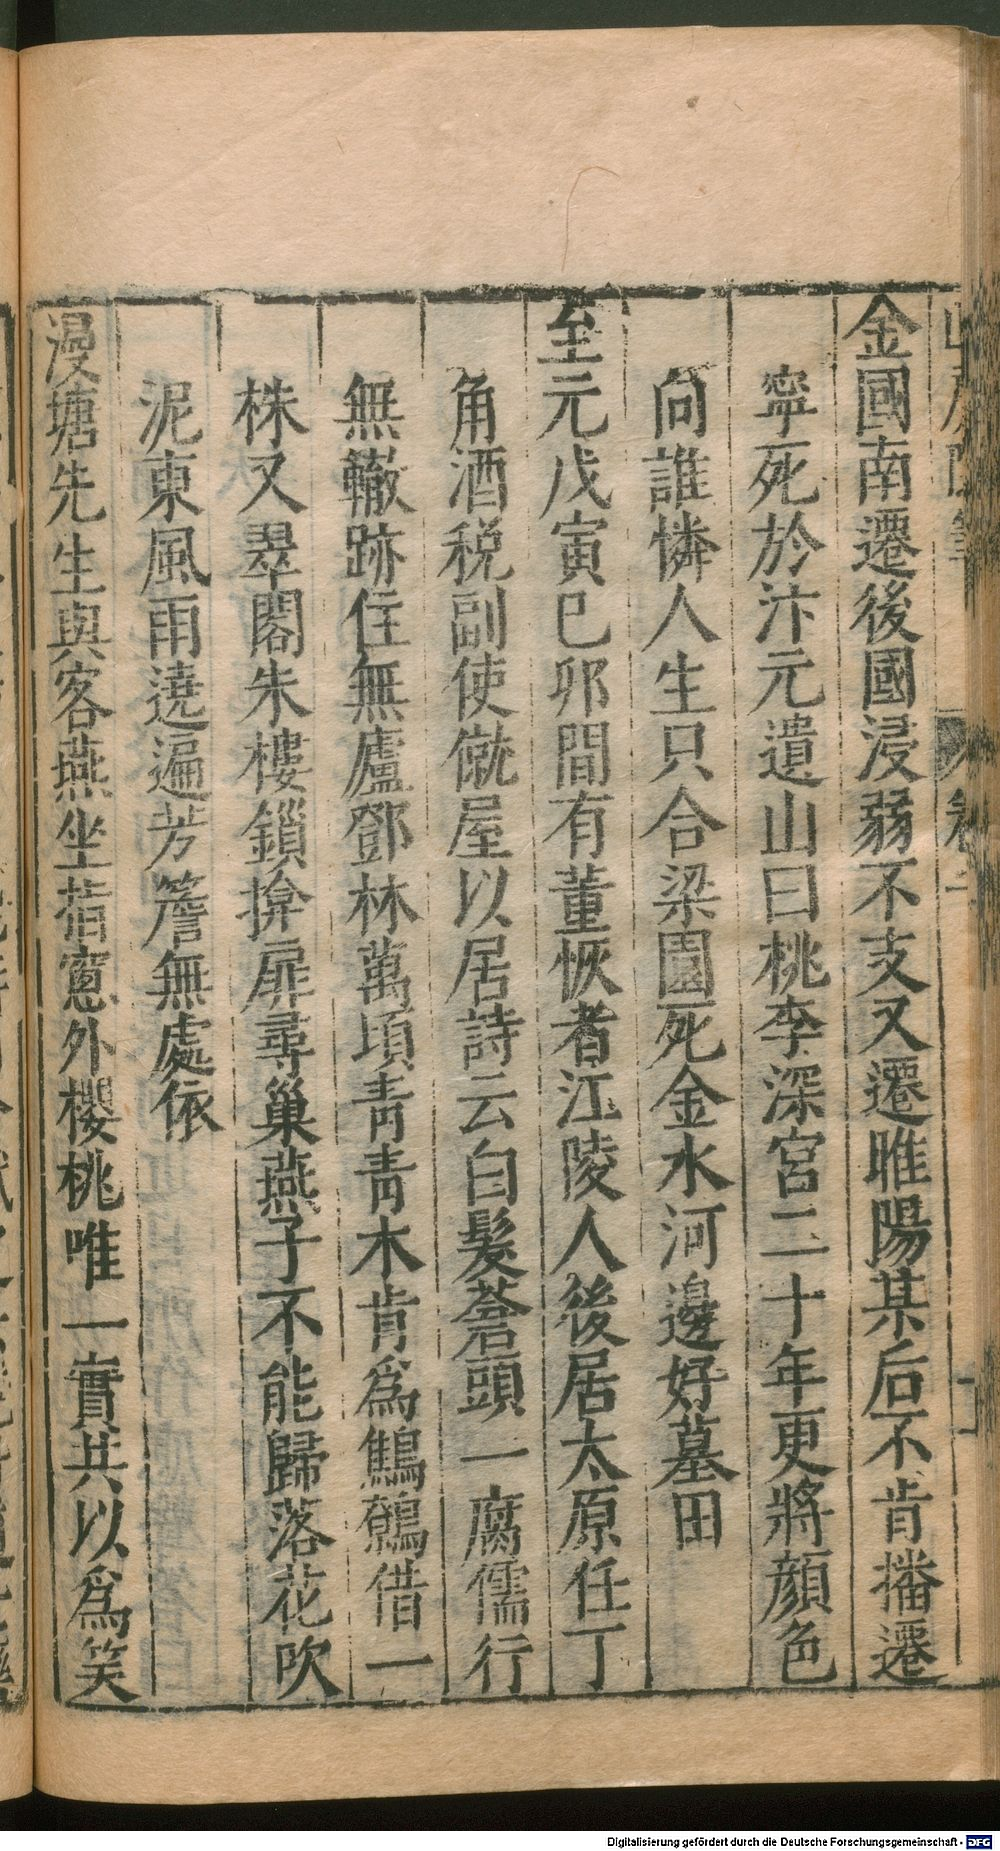 金國南遷後國浸弱不支又遷睢陽某后不肯播遷
寧死於汴元遺山曰桃李深宮二十年更將顏色
向誰憐人生只合梁園死金水河邊好墓田
至元戊寅已卯間有董恢者江陵人後居太原任丁
角酒税副使僦屋以居詩云白髮蒼頭一腐儒行
無轍跡住無廬鄧林萬頃青青木肯為鷦鷯借一
株又翠閣朱樓鎖揜扉尋巢燕子不能歸落花吹
泥東風雨遶遍芳簷無處依
漫塘先生與客燕坐指窻外櫻桃唯一實共以為笑
Digitalisierung gefördert durch die Deutsche Forschungsgemeinschaft - DFG